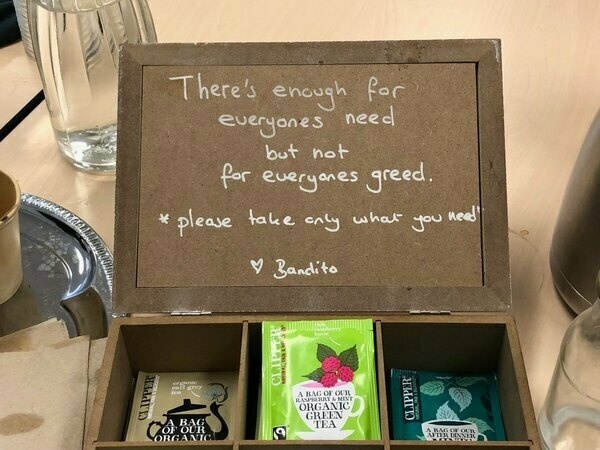 There's enough for
everyones need
but not
for everyones greed.
* please take only what you need"
♡ Bandito
CLIPPER
organic
earl grey
tea
A BAG
OF OUR
ORGANIC
CLIPPER
raspberry
A BAG OF OUR
RASPBERRY & MINT
ORGANIC
GREEN
TEA
CLIPPER
A BAG OF OUR
AFTER DINNER